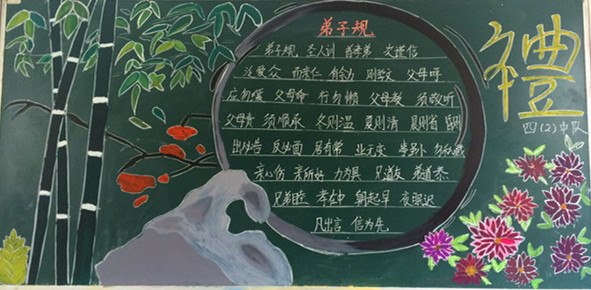 弟子规
弟子规 圣人训 首孝弟 次谨信
泛爱众 而亲仁 有余力 则学文 父母呼
应勿缓 父母命 行勿懒 父母教 须敬听
父母责 须顺承 冬则温 夏则清 晨则省 昏则
出必告 反必面 居有常 业无变 事虽小 勿私藏
亲心伤 亲所好 力为具 兄道友 弟道恭
兄弟睦 孝在中 朝起早 夜眠迟
凡出言 信为先
禮
四(2)中队